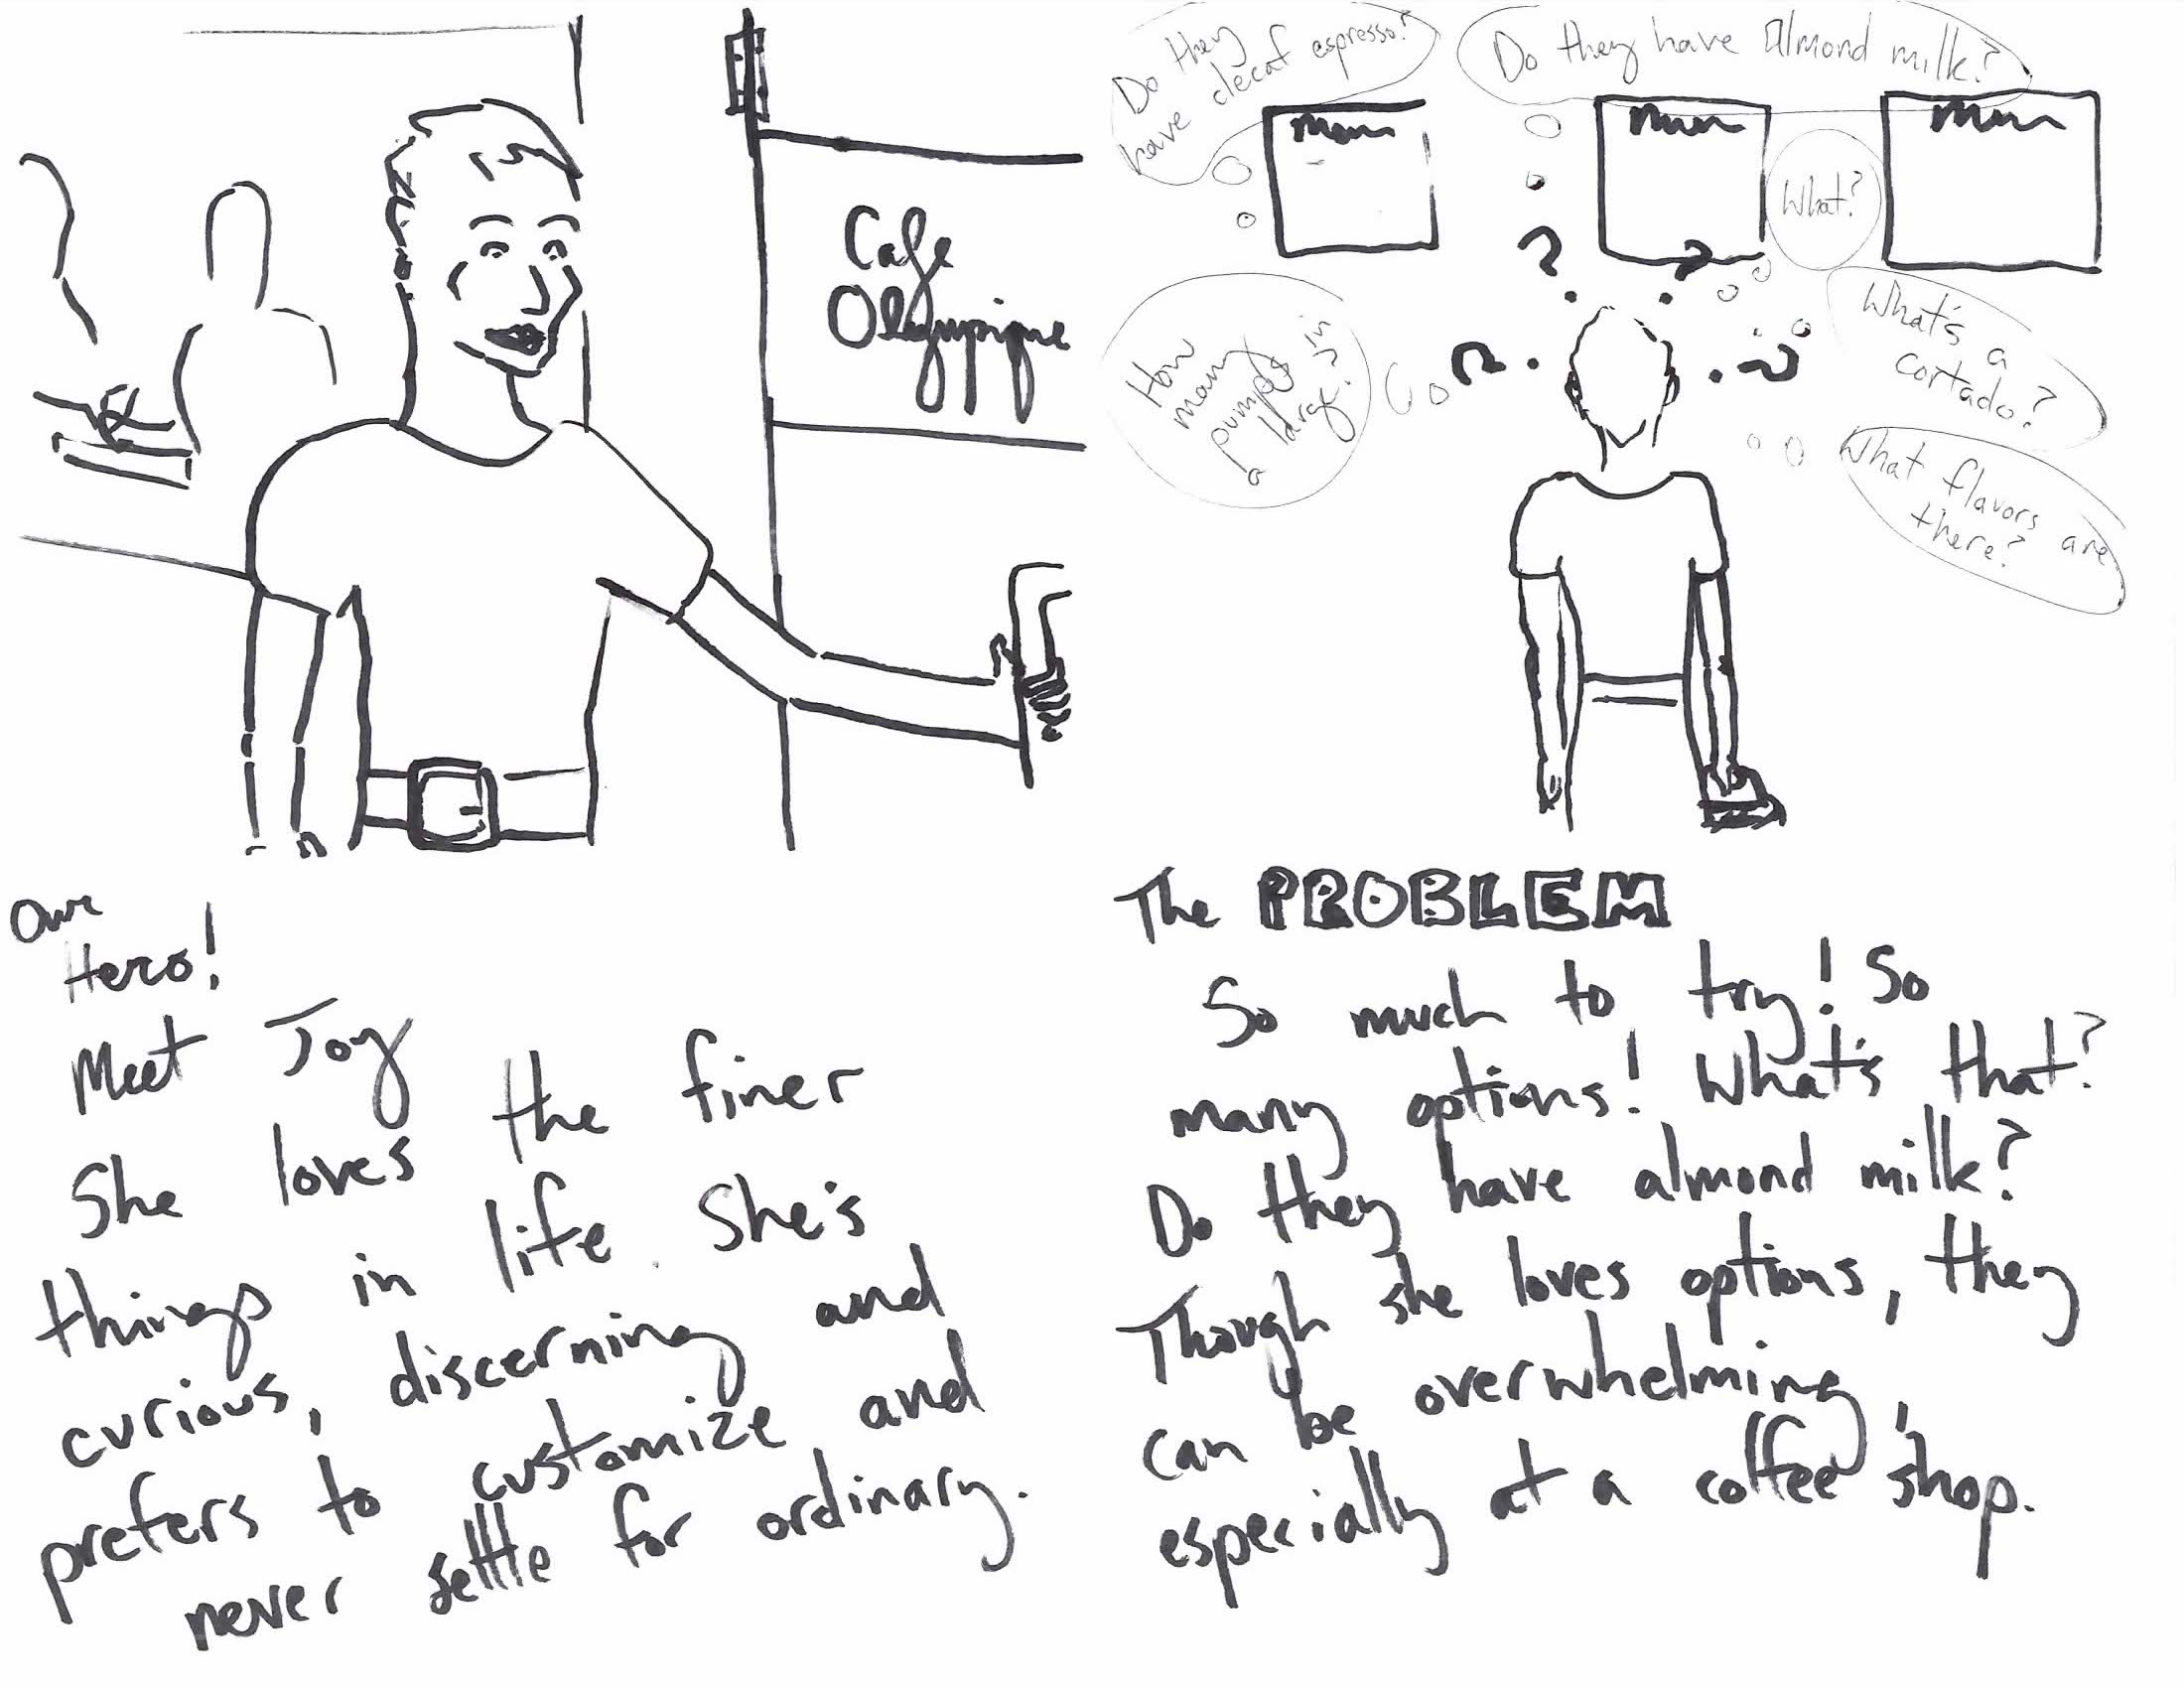 Cafe
Olympique
Our
Hero!
Meet Joy
She loves the finer
things in life. She's
curious, discerning and
prefers to customize and
never settle for ordinary.
Do they
have decaf espresso?
Do they have almond milk?
Menu
Menu
Menu
What?
How
many
pumps in
a large?
What's a
cortado?
What flavors are
there?
The PROBLEM
So much to try! So
many options! What's that?
Do they have almond milk?
Though she loves options, they
can be overwhelming,
especially at a coffee shop.